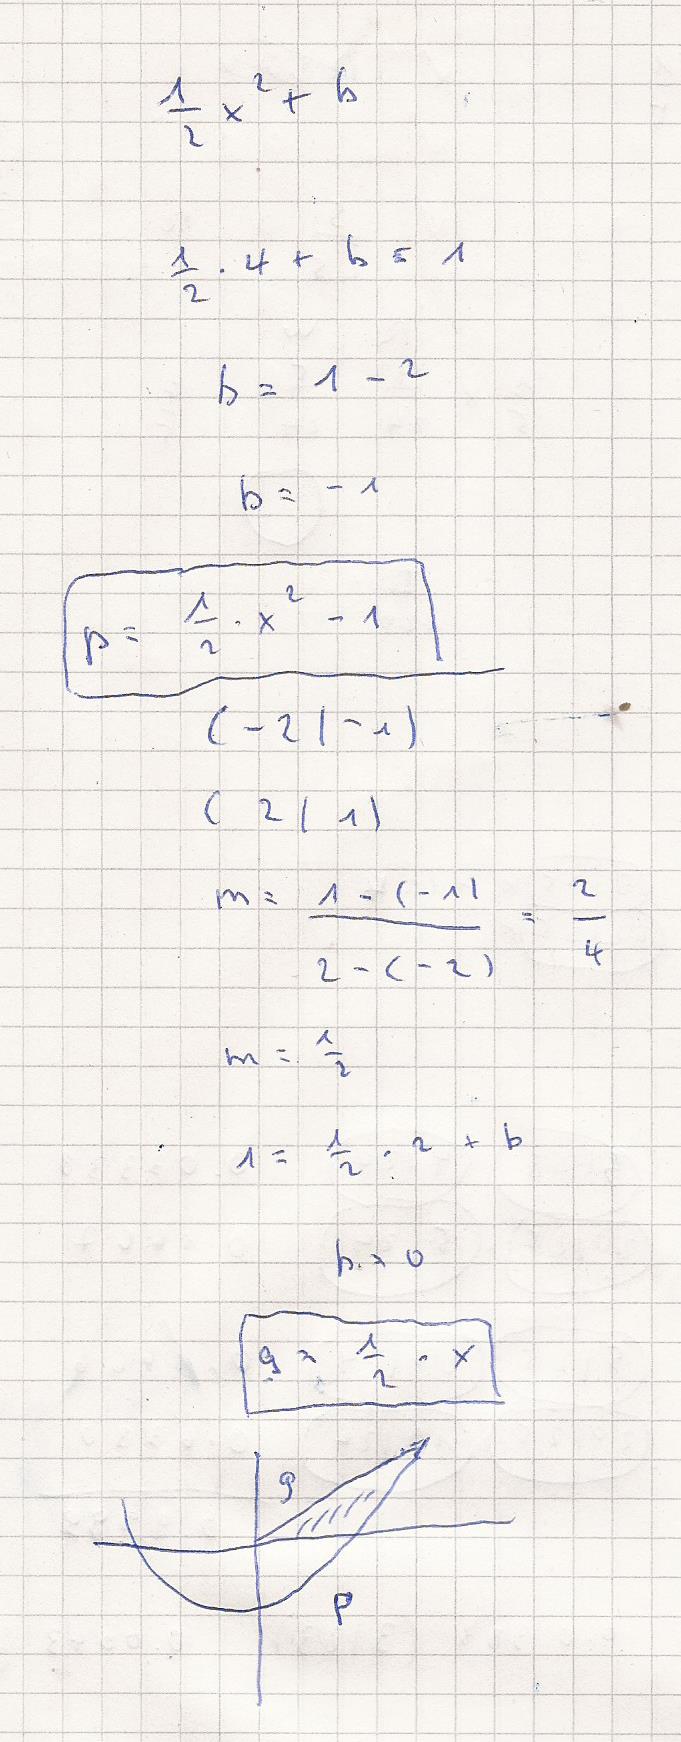 1/2 x² + b
1/2 · 4 + b = 1
b = 1 - 2
b = -1
p = 1/2 · x² - 1
(-2 | -1)
( 2 | 1)
m = 1 - (-1) / 2 - (-2) = 2/4
m = 1/2
1 = 1/2 · 2 + b
b = 0
g = 1/2 · x
g
p